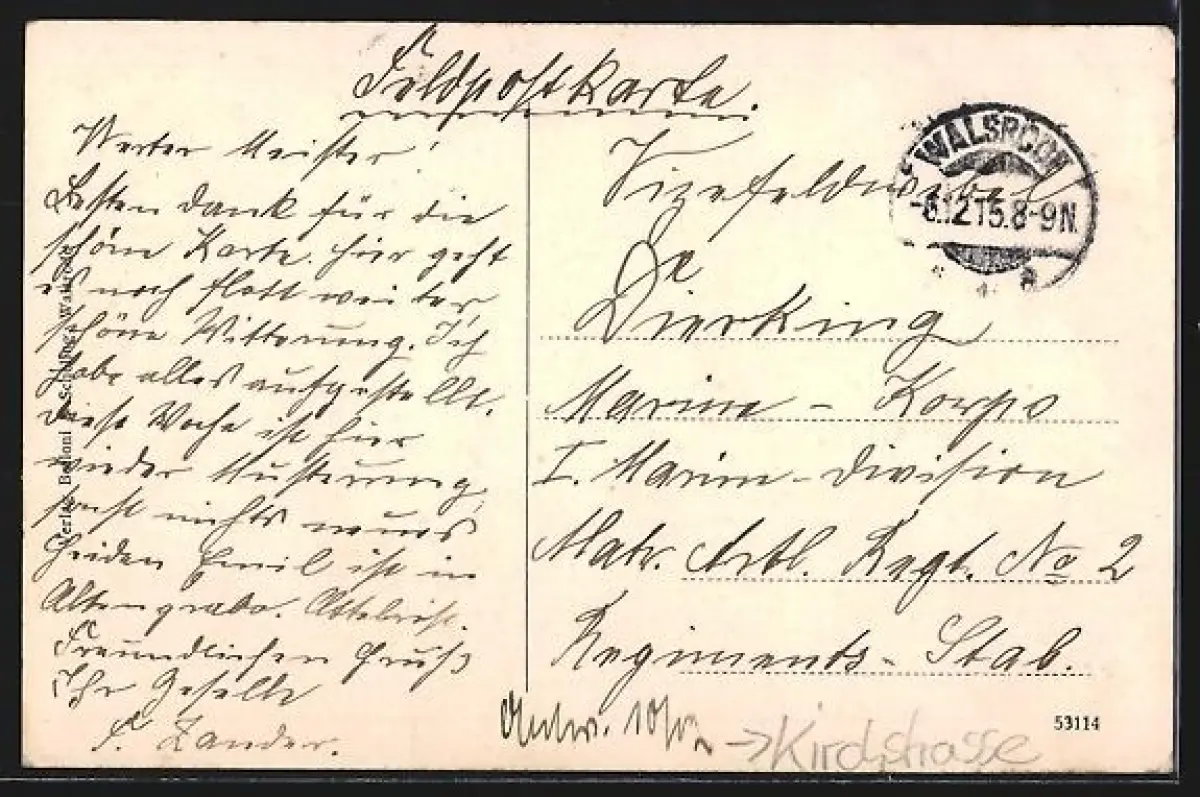 Feldpostkarte.
Werter Meister!
Besten Dank für die
schöne Karte. hier geht
es noch flott weiter,
schöne Witterung. Ich
habe alles aufgestellt.
diese Woche ist hier
wieder Musterung,
sonst nichts neues
Heiden Emil ist in
Altengrabo.
Freundlichen Gruß
Ihr Geselle
F. Zander.
Vizefeldwebel
Dierking
Marine - Korps
I. Marine-Division
Matr. Artl. Regt. No 2
Regiments- Stab.
WALSRODE
-6.12.15.8-9N.
Verlag Bedloni
Walsrode
53114
Antw. 10/12
→ Kirchstrasse